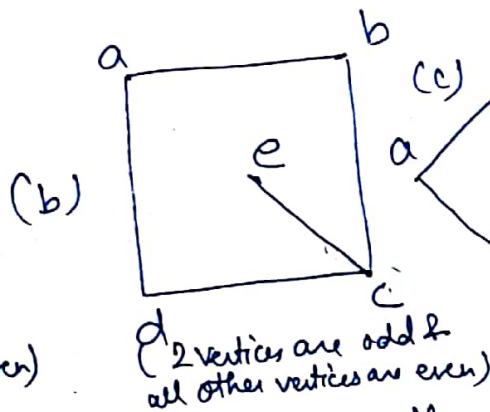 a
b
(c)
e
a
(b)
c
d
en)
(2 vertices are odd &
all other vertices are even)